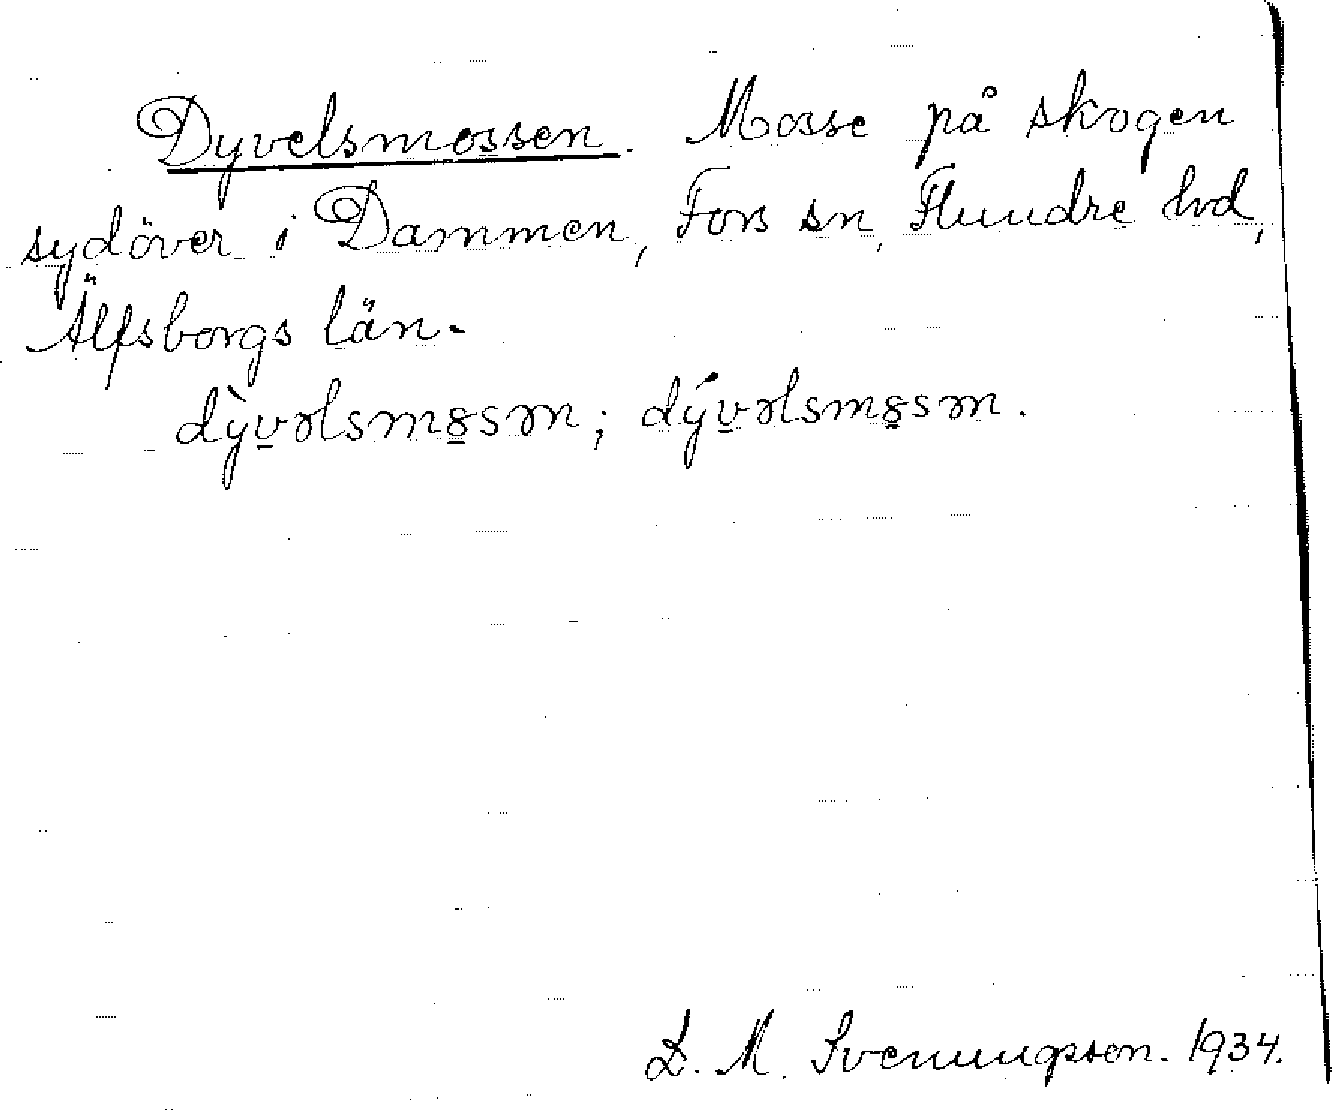 Dyvelsmossen. Mosse på skogen
sydöver i Dammen, Fors sn, Flundre hd,
Älfsborgs län.
dỳvəlsm8səm; dývəlsm8səm.
D. M. Svenungsson. 1934.